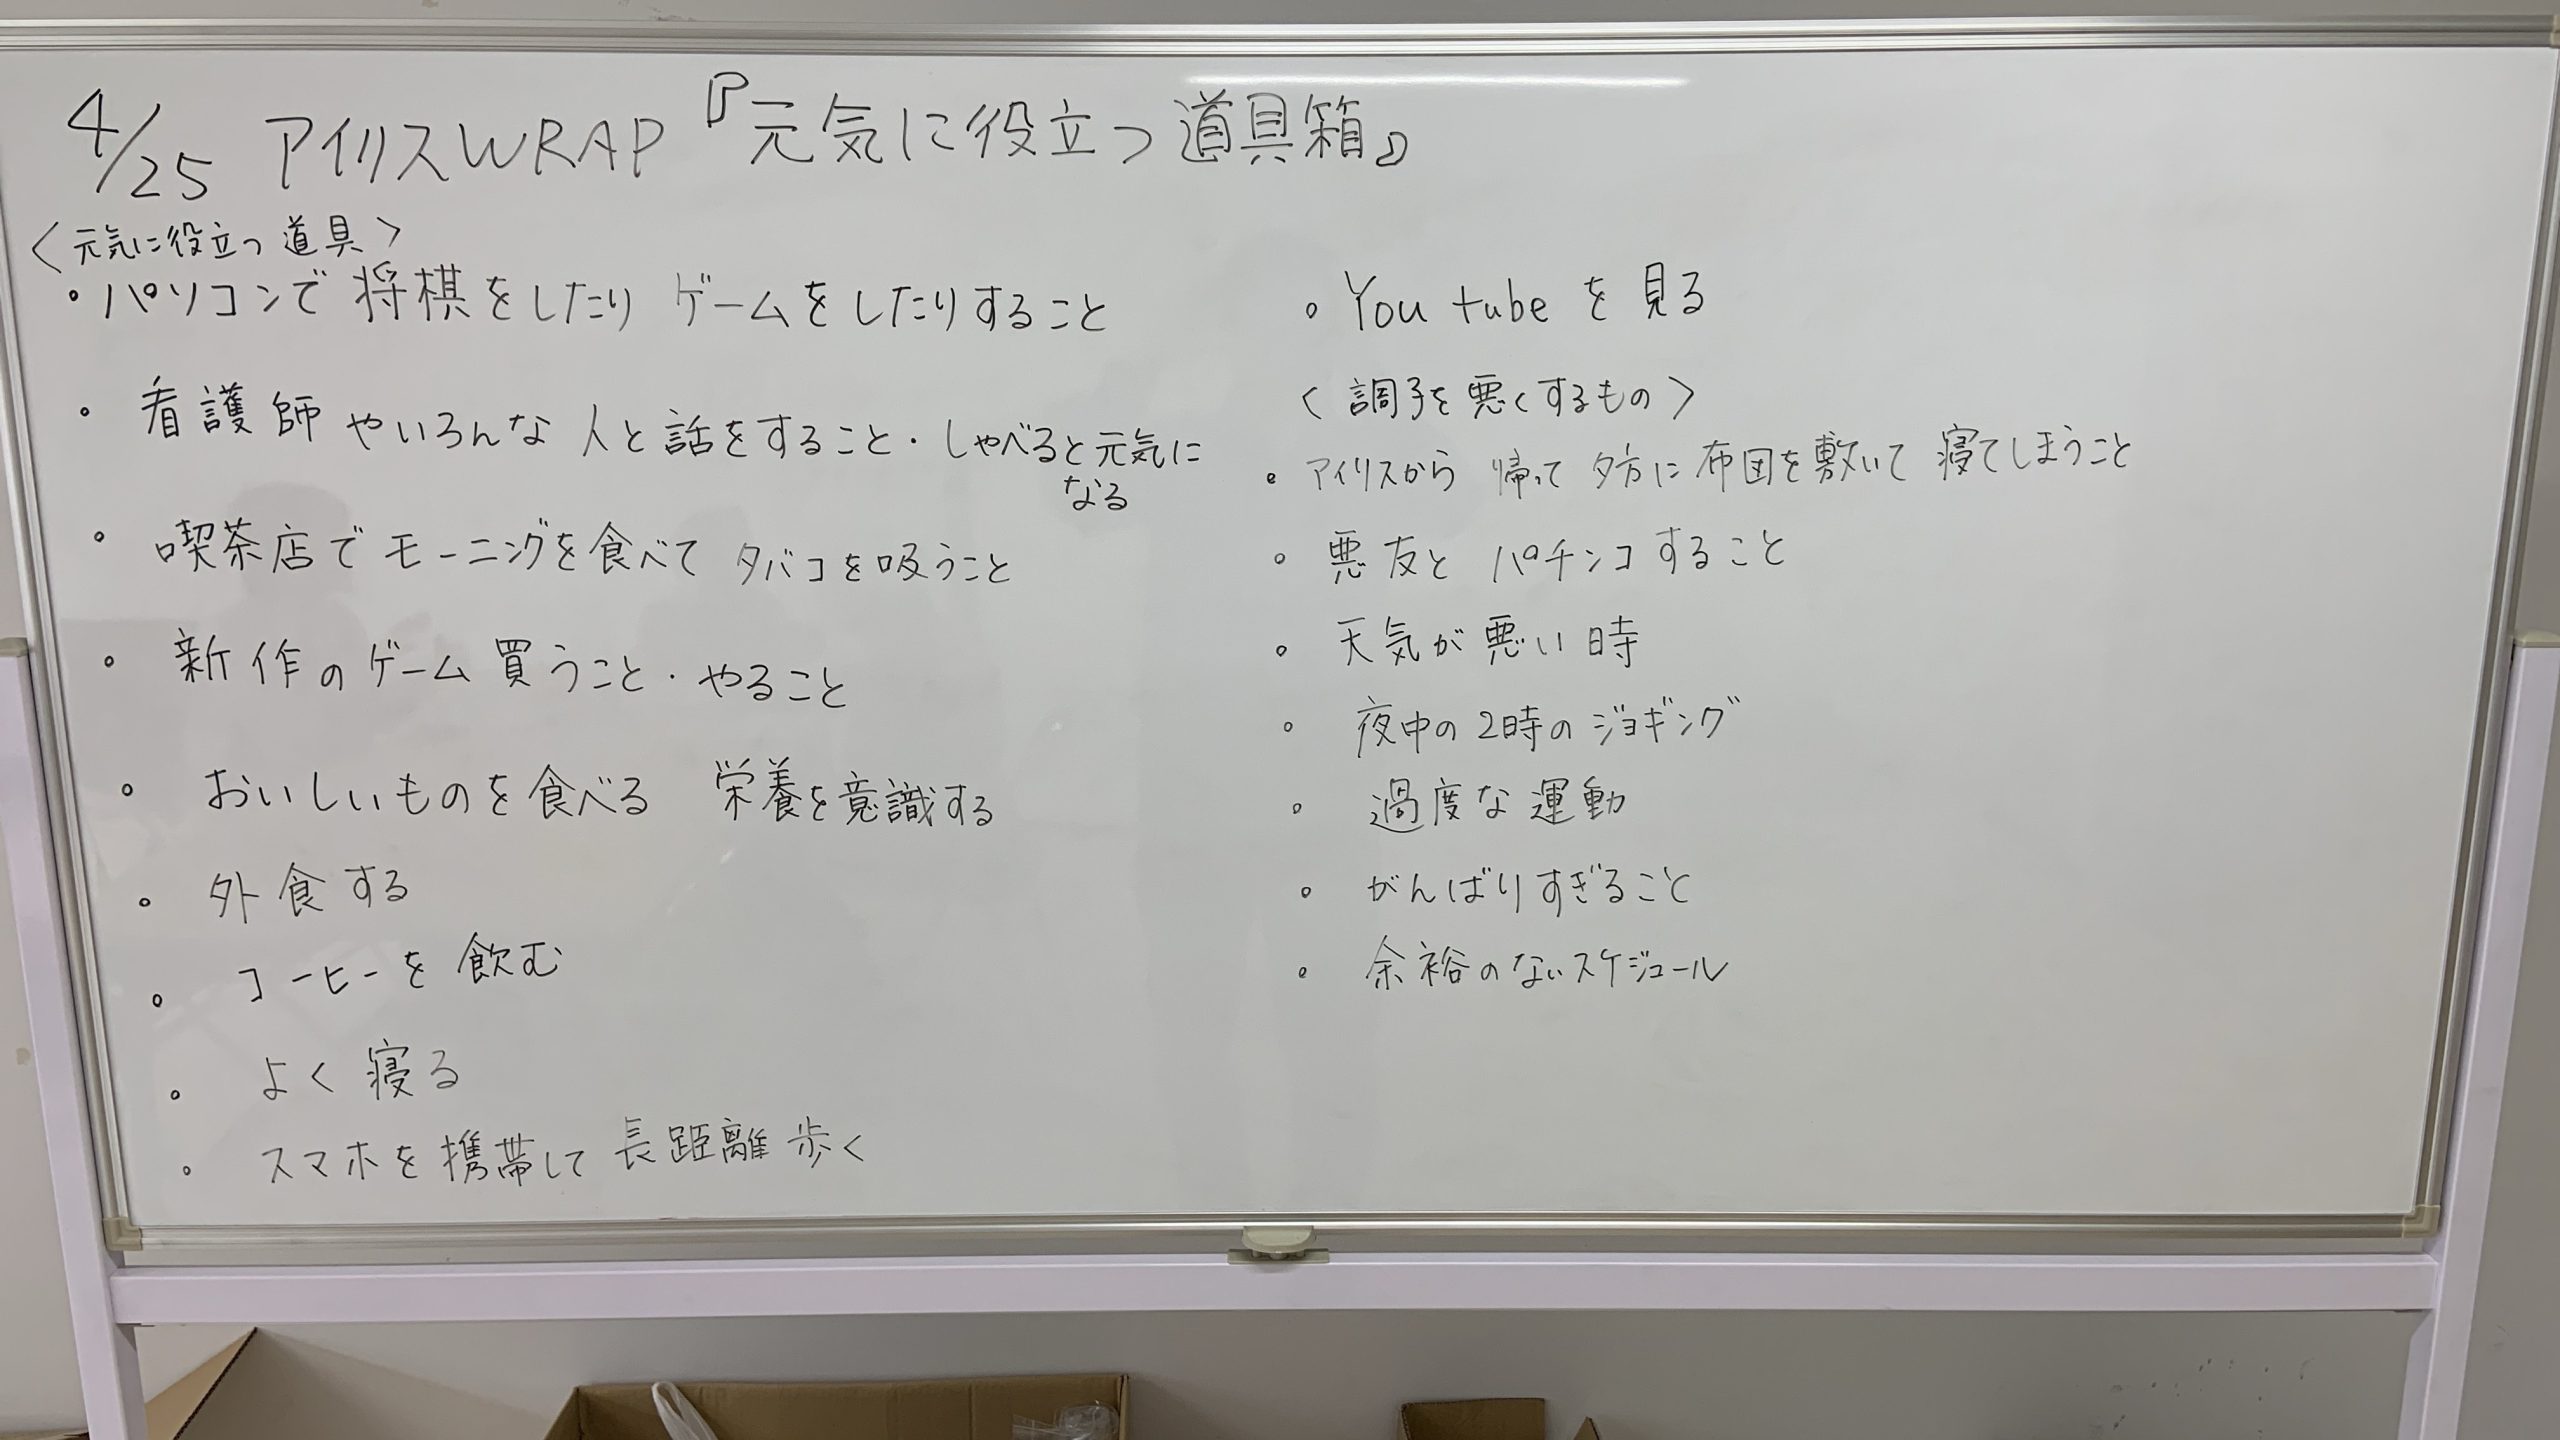 4/25 アイリスWRAP『元気に役立つ道具箱』
〈元気に役立つ道具〉
・パソコンで将棋をしたりゲームをしたりすること
・看護師やいろんな人と話をすること・しゃべると元気に
なる
・喫茶店でモーニングを食べてタバコを吸うこと
・新作のゲーム買うこと・やること
・おいしいものを食べる 栄養を意識する
・外食する
・コーヒーを飲む
・よく寝る
・スマホを携帯して長距離歩く
・You tubeを見る
〈調子を悪くするもの〉
・アイリスから帰って夕方に布団を敷いて寝てしまうこと
・悪友とパチンコすること
・天気が悪い時
・夜中の2時のジョギング
・過度な運動
・がんばりすぎること
・余裕のないスケジュール